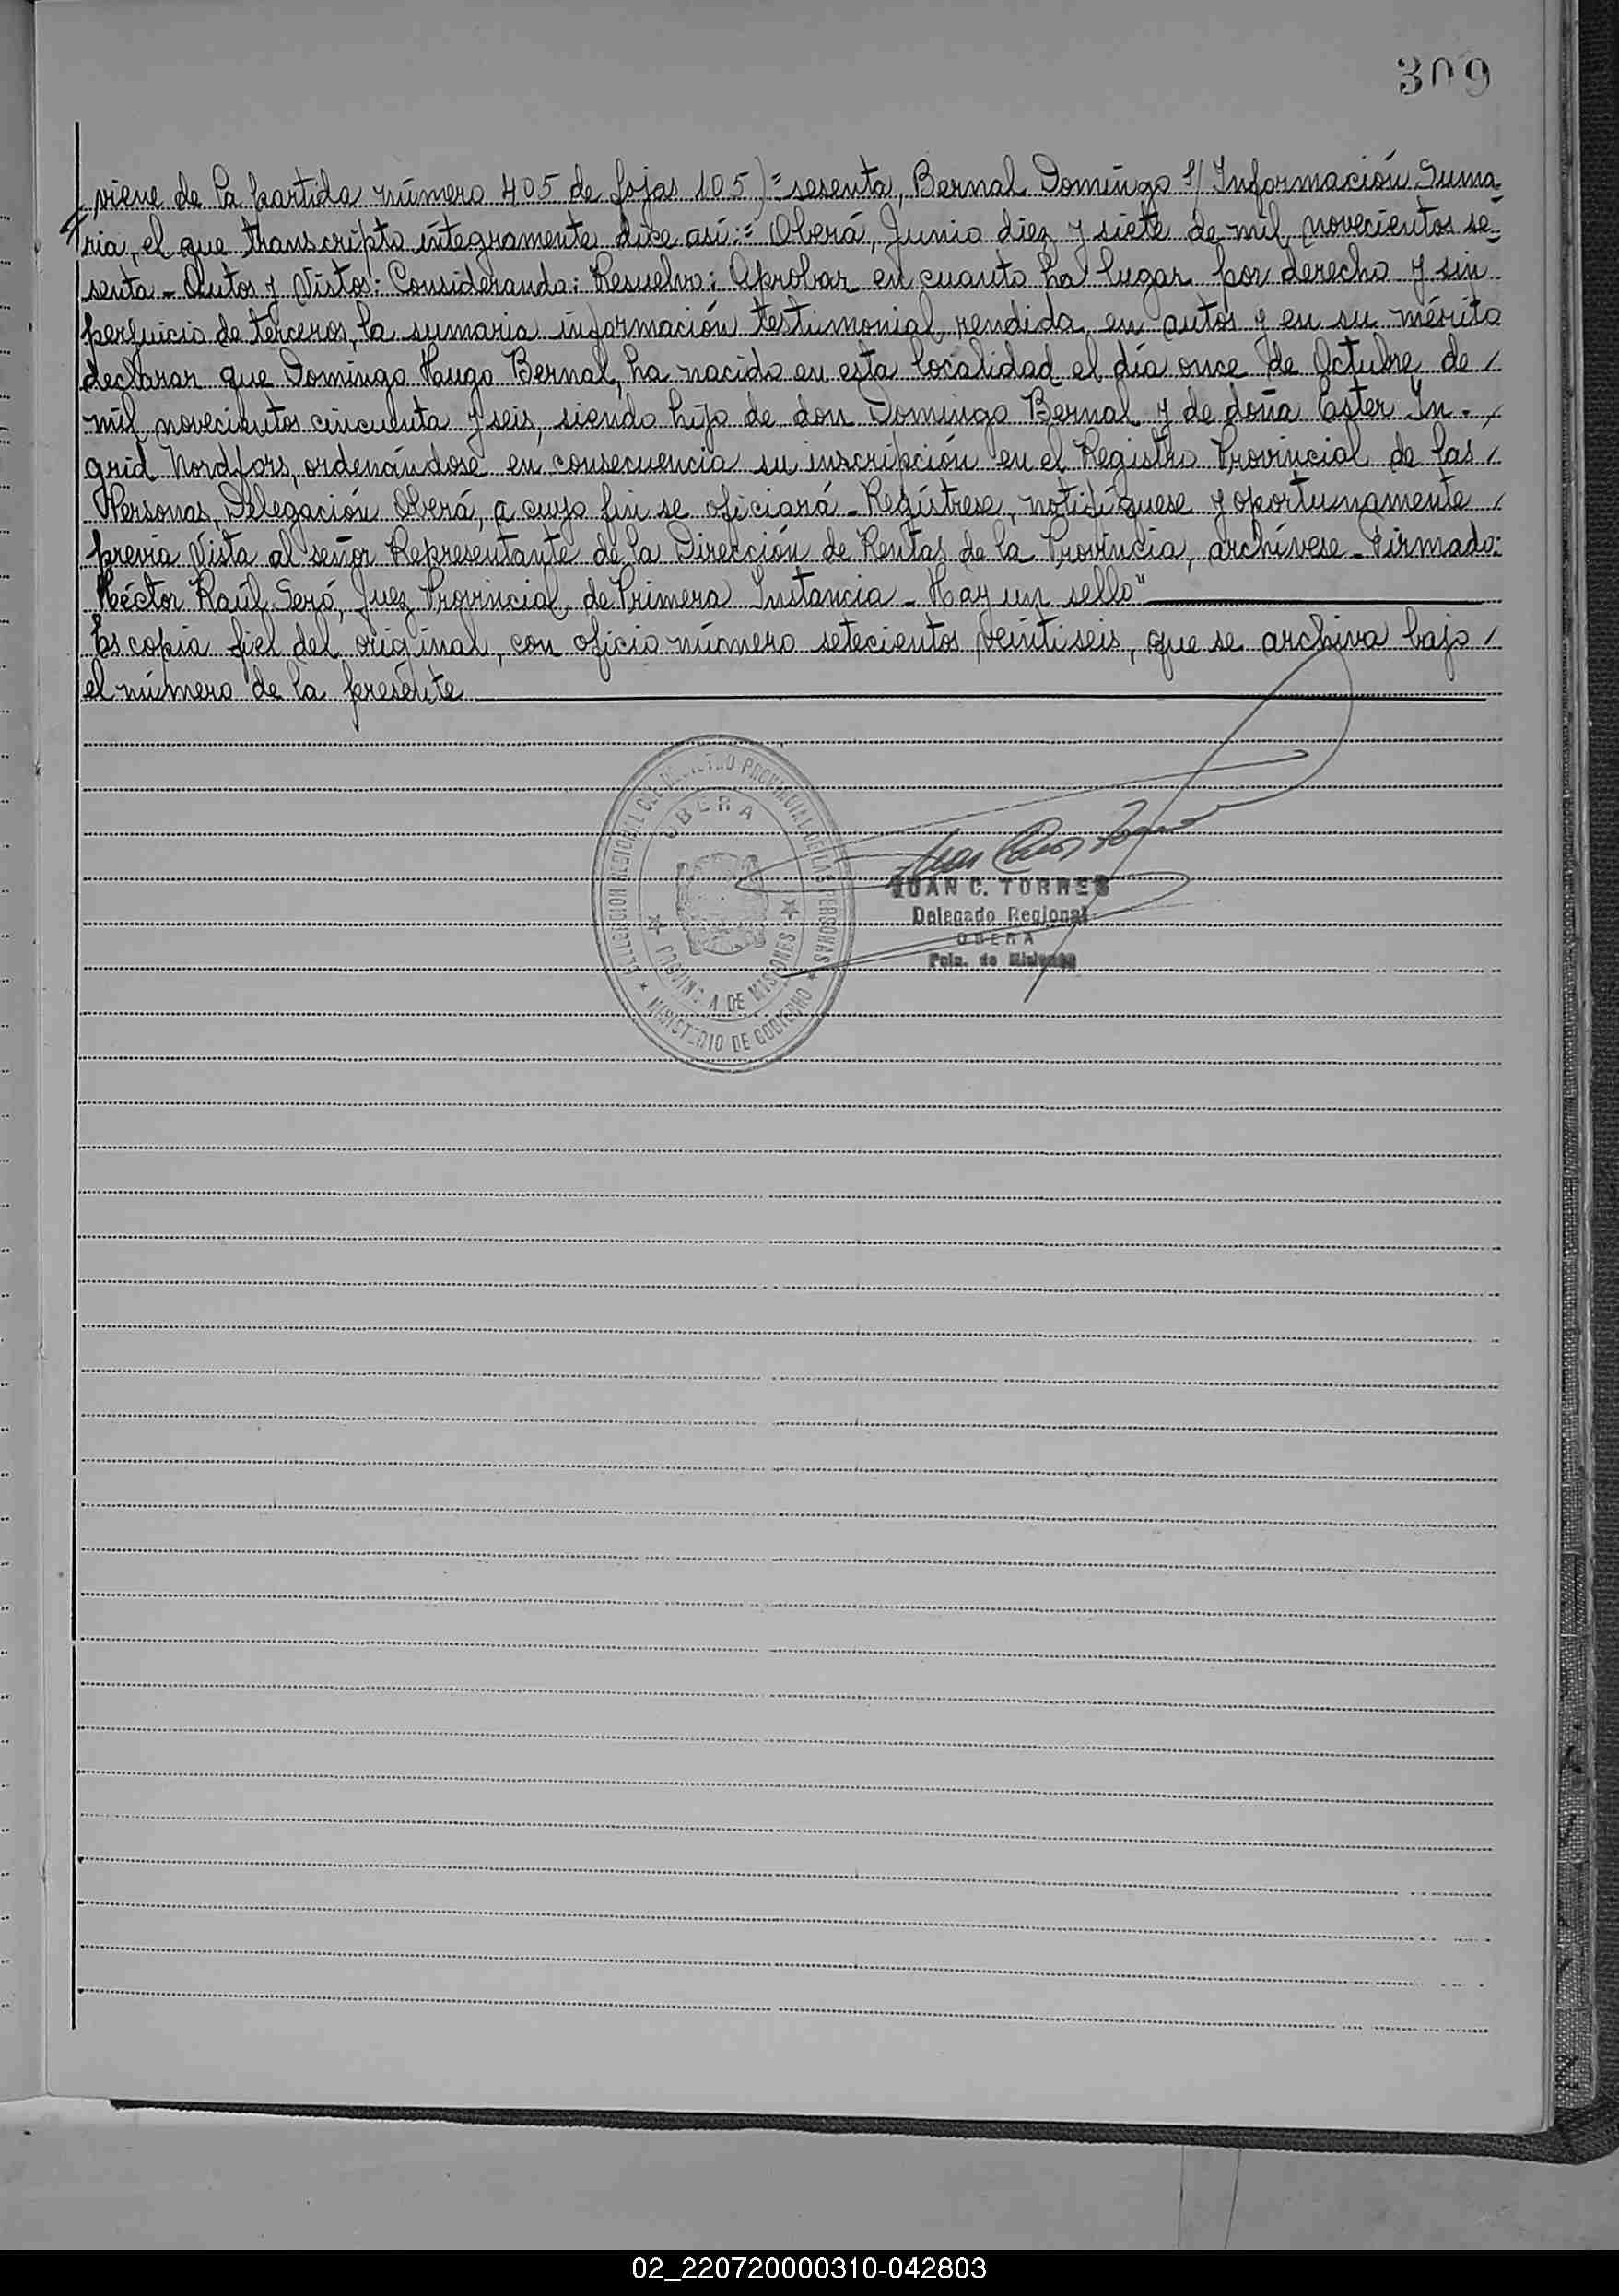 309
(viene de la partida número 405 de fojas 105) = sesenta, Bernal Domingo s/ Información Suma=
ria, el que transcripto íntegramente dice así: = Oberá, Junio diez y siete de mil novecientos se=
senta - Autos y Vistos: Considerando: Resuelvo: Aprobar en cuanto ha lugar por derecho y sin
perjuicio de terceros, la sumaria información testimonial rendida en autos y en su mérito
declarar que Domingo Hugo Bernal, ha nacido en esta localidad el día once de Octubre de /
mil novecientos cincuenta y seis, siendo hijo de don Domingo Bernal y de doña Ester In- /
grid Nordfors, ordenándose en consecuencia su inscripción en el Registro Provincial de las /
Personas, Delegación Oberá, a cuyo fin se oficiará - Regístrese, notifíquese y oportunamente /
previa vista al señor Representante de la Dirección de Rentas de la Provincia, archívese - Firmado:
Héctor Raúl Seró, Juez Provincial de Primera Instancia - Hay un sello"
Es copia fiel del original, con oficio número setecientos veintiseis, que se archiva bajo /
el número de la presente
REGIONAL DEL REGISTRO PROVINCIAL DE LAS PERSONAS
OBERA
PROVINCIA DE MISIONES
MINISTERIO DE GOBIERNO
JUAN C. TORRES
Delegado Regional
OBERA
Pcia. de Misiones
02_220720000310-042803